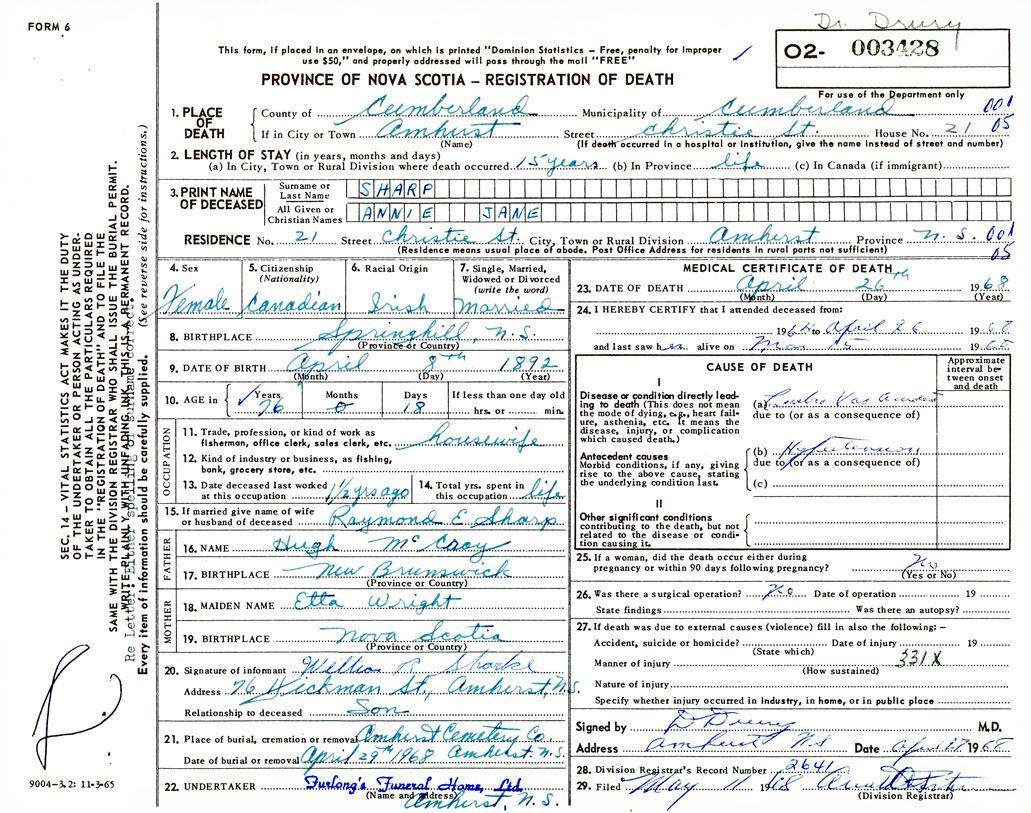 Dr. Drury
FORM 6
O2- 003428
This form, if placed in an envelope, on which is printed "Dominion Statistics – Free, penalty for improper
use $50," and properly addressed will pass through the mail "FREE"
PROVINCE OF NOVA SCOTIA – REGISTRATION OF DEATH
For use of the Department only
1. PLACE OF DEATH
County of Cumberland Municipality of Cumberland 001
If in City or Town Amhurst Street Christie St. House No. 21 05
(Name) (If death occurred in a hospital or institution, give the name instead of street and number)
2. LENGTH OF STAY (in years, months and days)
(a) In City, Town or Rural Division where death occurred 15 years (b) In Province life (c) In Canada (if immigrant)
3. PRINT NAME OF DECEASED
Surname or Last Name SHARP
All Given or Christian Names ANNIE JANE
RESIDENCE No. 21 Street Christie St. City, Town or Rural Division Amhurst Province N.S. 001
(Residence means usual place of abode. Post Office Address for residents in rural parts not sufficient) 05
4. Sex
Female
5. Citizenship
(Nationality)
Canadian
6. Racial Origin
Irish
7. Single, Married,
Widowed or Divorced
(write the word)
Married
8. BIRTHPLACE Springhill, N.S.
(Province or Country)
9. DATE OF BIRTH April 8th 1892
(Month) (Day) (Year)
10. AGE in
Years Months Days If less than one day old
76 0 18 hrs. or min.
OCCUPATION
11. Trade, profession, or kind of work as
fisherman, office clerk, sales clerk, etc. housewife
12. Kind of industry or business, as fishing,
bank, grocery store, etc.
13. Date deceased last worked
at this occupation 1 1/2 yrs ago
14. Total yrs. spent in
this occupation life
15. If married give name of wife
or husband of deceased Raymond E Sharp
FATHER
16. NAME Hugh McCroy
17. BIRTHPLACE New Brunswick
(Province or Country)
MOTHER
18. MAIDEN NAME Etta Wright
19. BIRTHPLACE Nova Scotia
(Province or Country)
20. Signature of informant
Address 76 Hickman St., Amherst, N.S.
Relationship to deceased Son
21. Place of burial, cremation or removal Amherst Cemetery Co.
Date of burial or removal April 29th 1968 Amherst. N.S.
22. UNDERTAKER Furlong's Funeral Home, Ltd.
(Name and Address) Amherst, N.S.
MEDICAL CERTIFICATE OF DEATH
23. DATE OF DEATH April 26th 1968
(Month) (Day) (Year)
24. I HEREBY CERTIFY that I attended deceased from:
1964 to April 26 1968
and last saw her alive on Mar 15 1968
CAUSE OF DEATH
Approximate
interval be-
tween onset
and death
I
Disease or condition directly lead-
ing to death (This does not mean
the mode of dying, e.g., heart fail-
ure, asthenia, etc. It means the
disease, injury, or complication
which caused death.)
(a) Cerebro Vas Accident
due to (or as a consequence of)
Antecedent causes
Morbid conditions, if any, giving
rise to the above cause, stating
the underlying condition last.
(b) Hypertension
due to (or as a consequence of)
(c)
II
Other significant conditions
contributing to the death, but not
related to the disease or condi-
tion causing it.
25. If a woman, did the death occur either during
pregnancy or within 90 days following pregnancy? No
(Yes or No)
26. Was there a surgical operation? No Date of operation 19
State findings Was there an autopsy?
27. If death was due to external causes (violence) fill in also the following: –
Accident, suicide or homicide? Date of injury 19
(State which)
Manner of injury 331X
(How sustained)
Nature of injury
Specify whether injury occurred in industry, in home, or in public place
Signed by D Drury M.D.
Address Amherst N.S Date April 27 1968
28. Division Registrar's Record Number 2641
29. Filed May 11 1968
(Division Registrar)
SEC. 14 – VITAL STATISTICS ACT MAKES IT THE DUTY
OF THE UNDERTAKER OR PERSON ACTING AS UNDER-
TAKER TO OBTAIN ALL THE PARTICULARS REQUIRED
IN THE "REGISTRATION OF DEATH" AND TO FILE THE
SAME WITH THE DIVISION REGISTRAR WHO SHALL ISSUE THE BURIAL PERMIT.
WRITE PLAINLY WITH UNFADING INK. THIS IS A PERMANENT RECORD.
Re Letter: "Either spelling of Surname correct."
Every item of information should be carefully supplied. (See reverse side for instructions.)
9004–3.2: 11-3-65